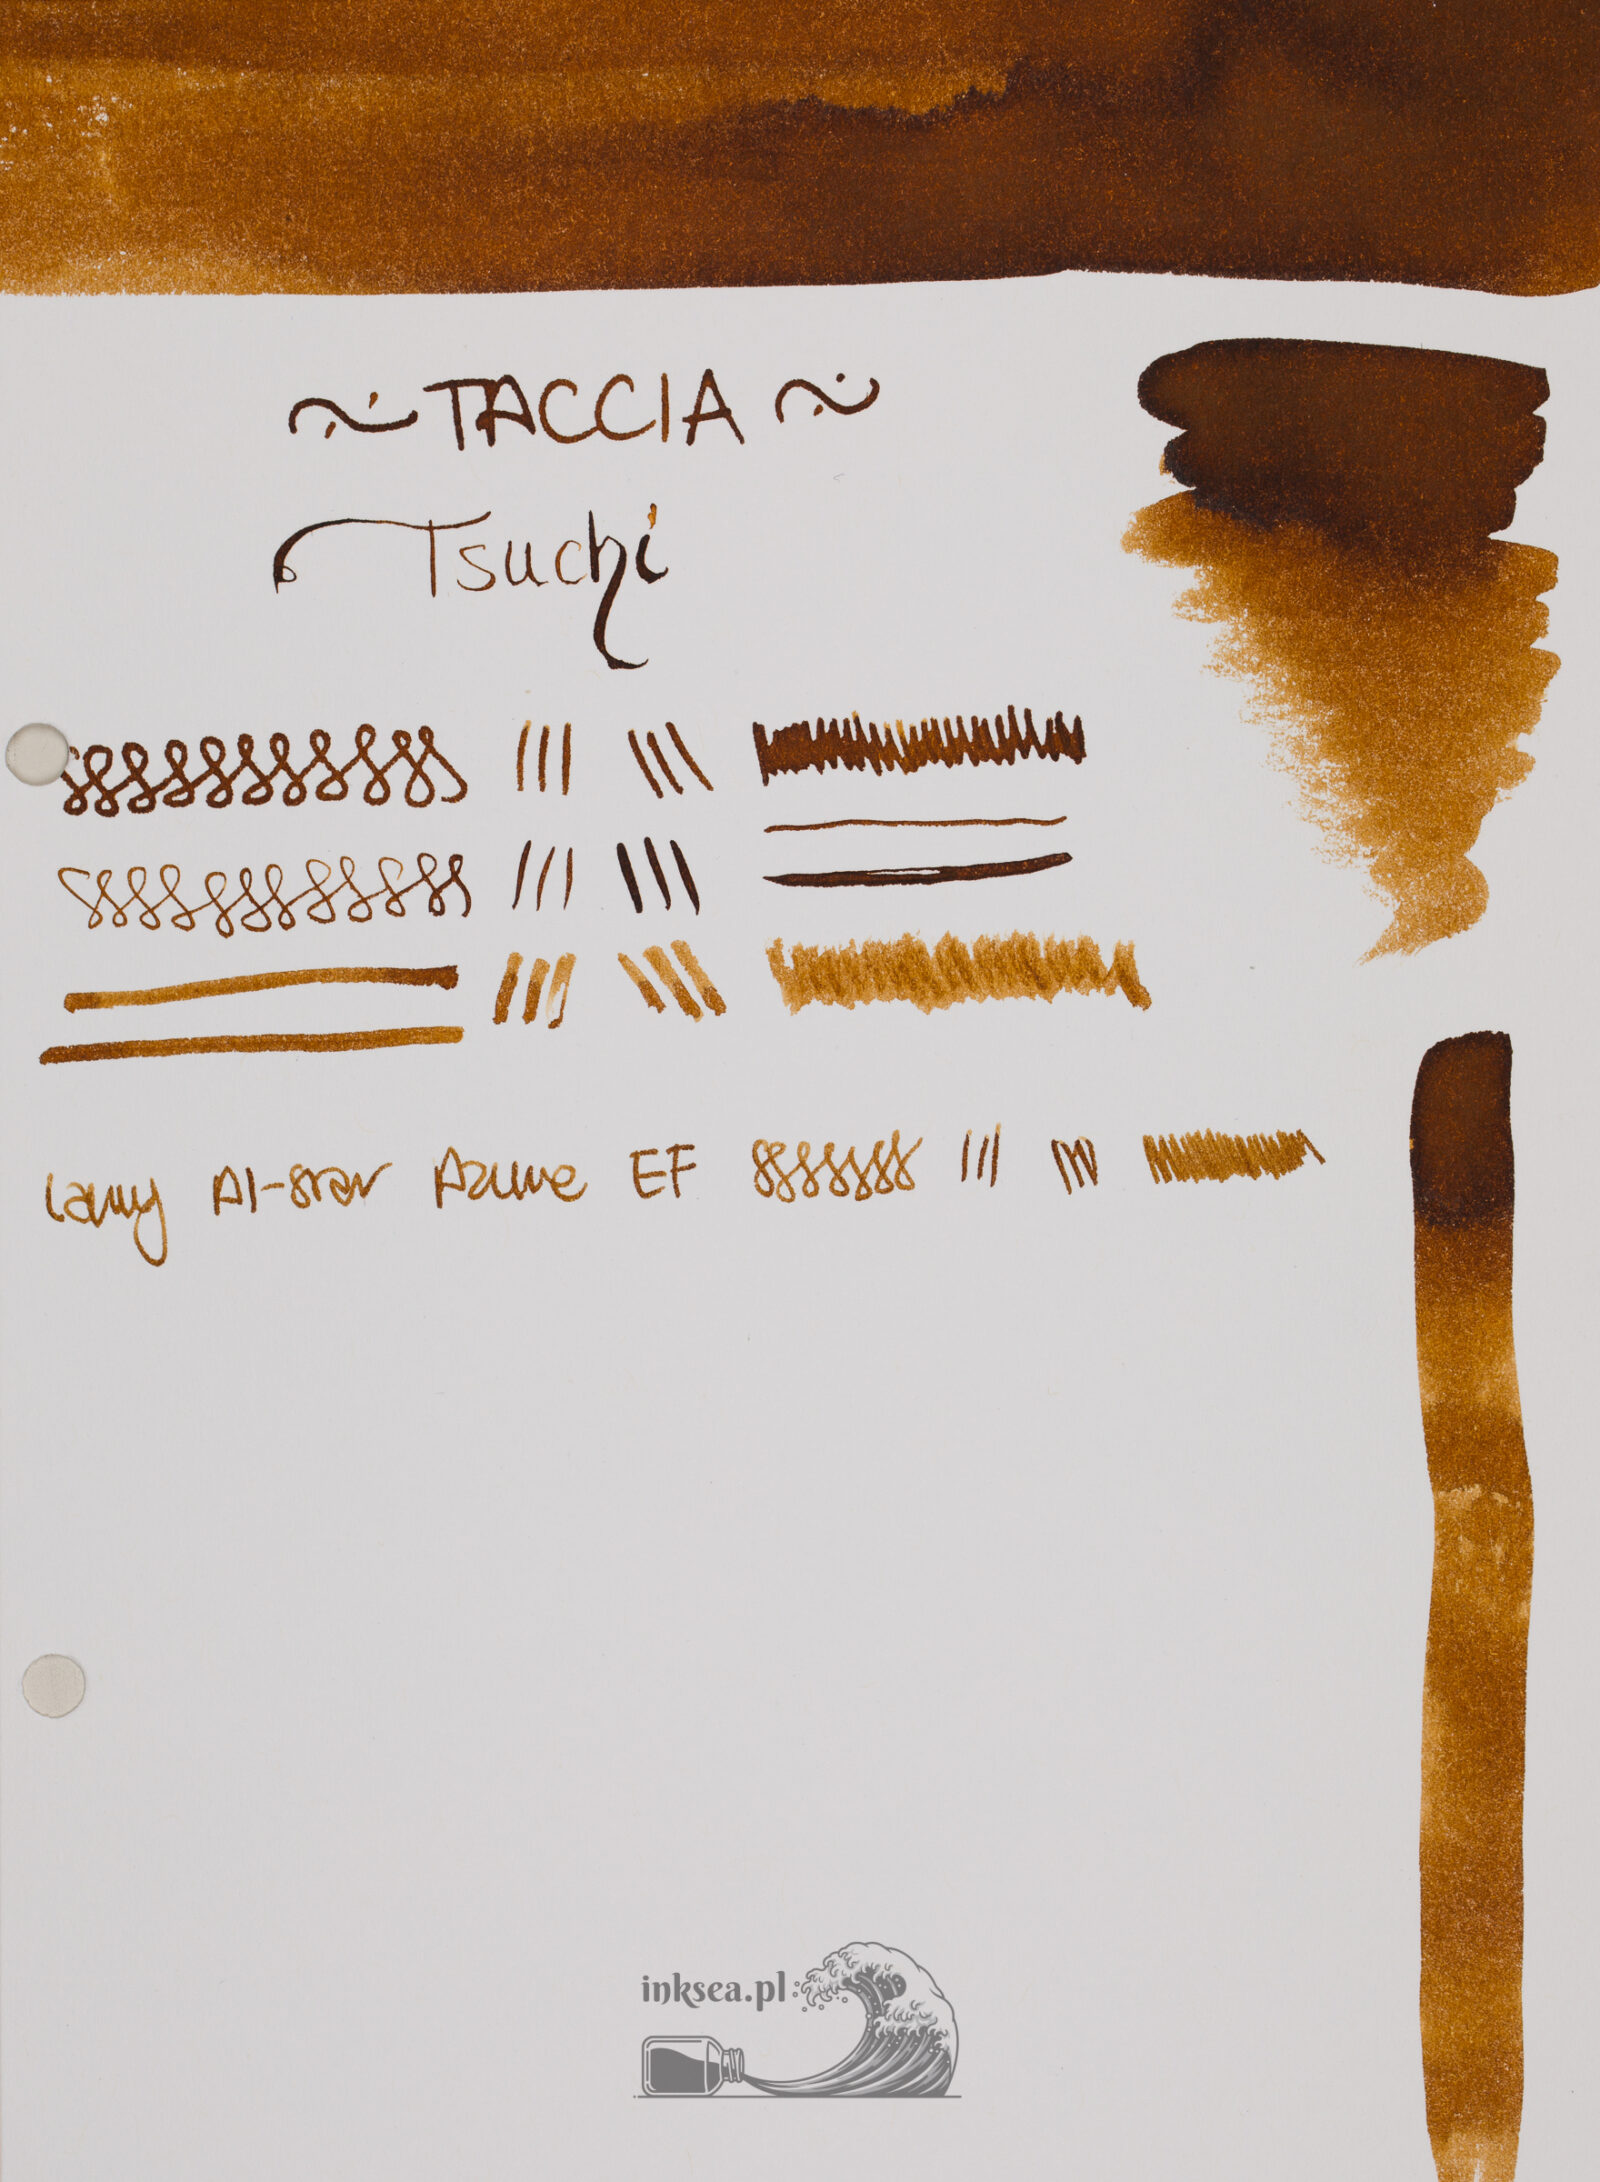 ~ TACCIA ~
Tsuchi
Lamy Al-star Azure EF
inksea.pl